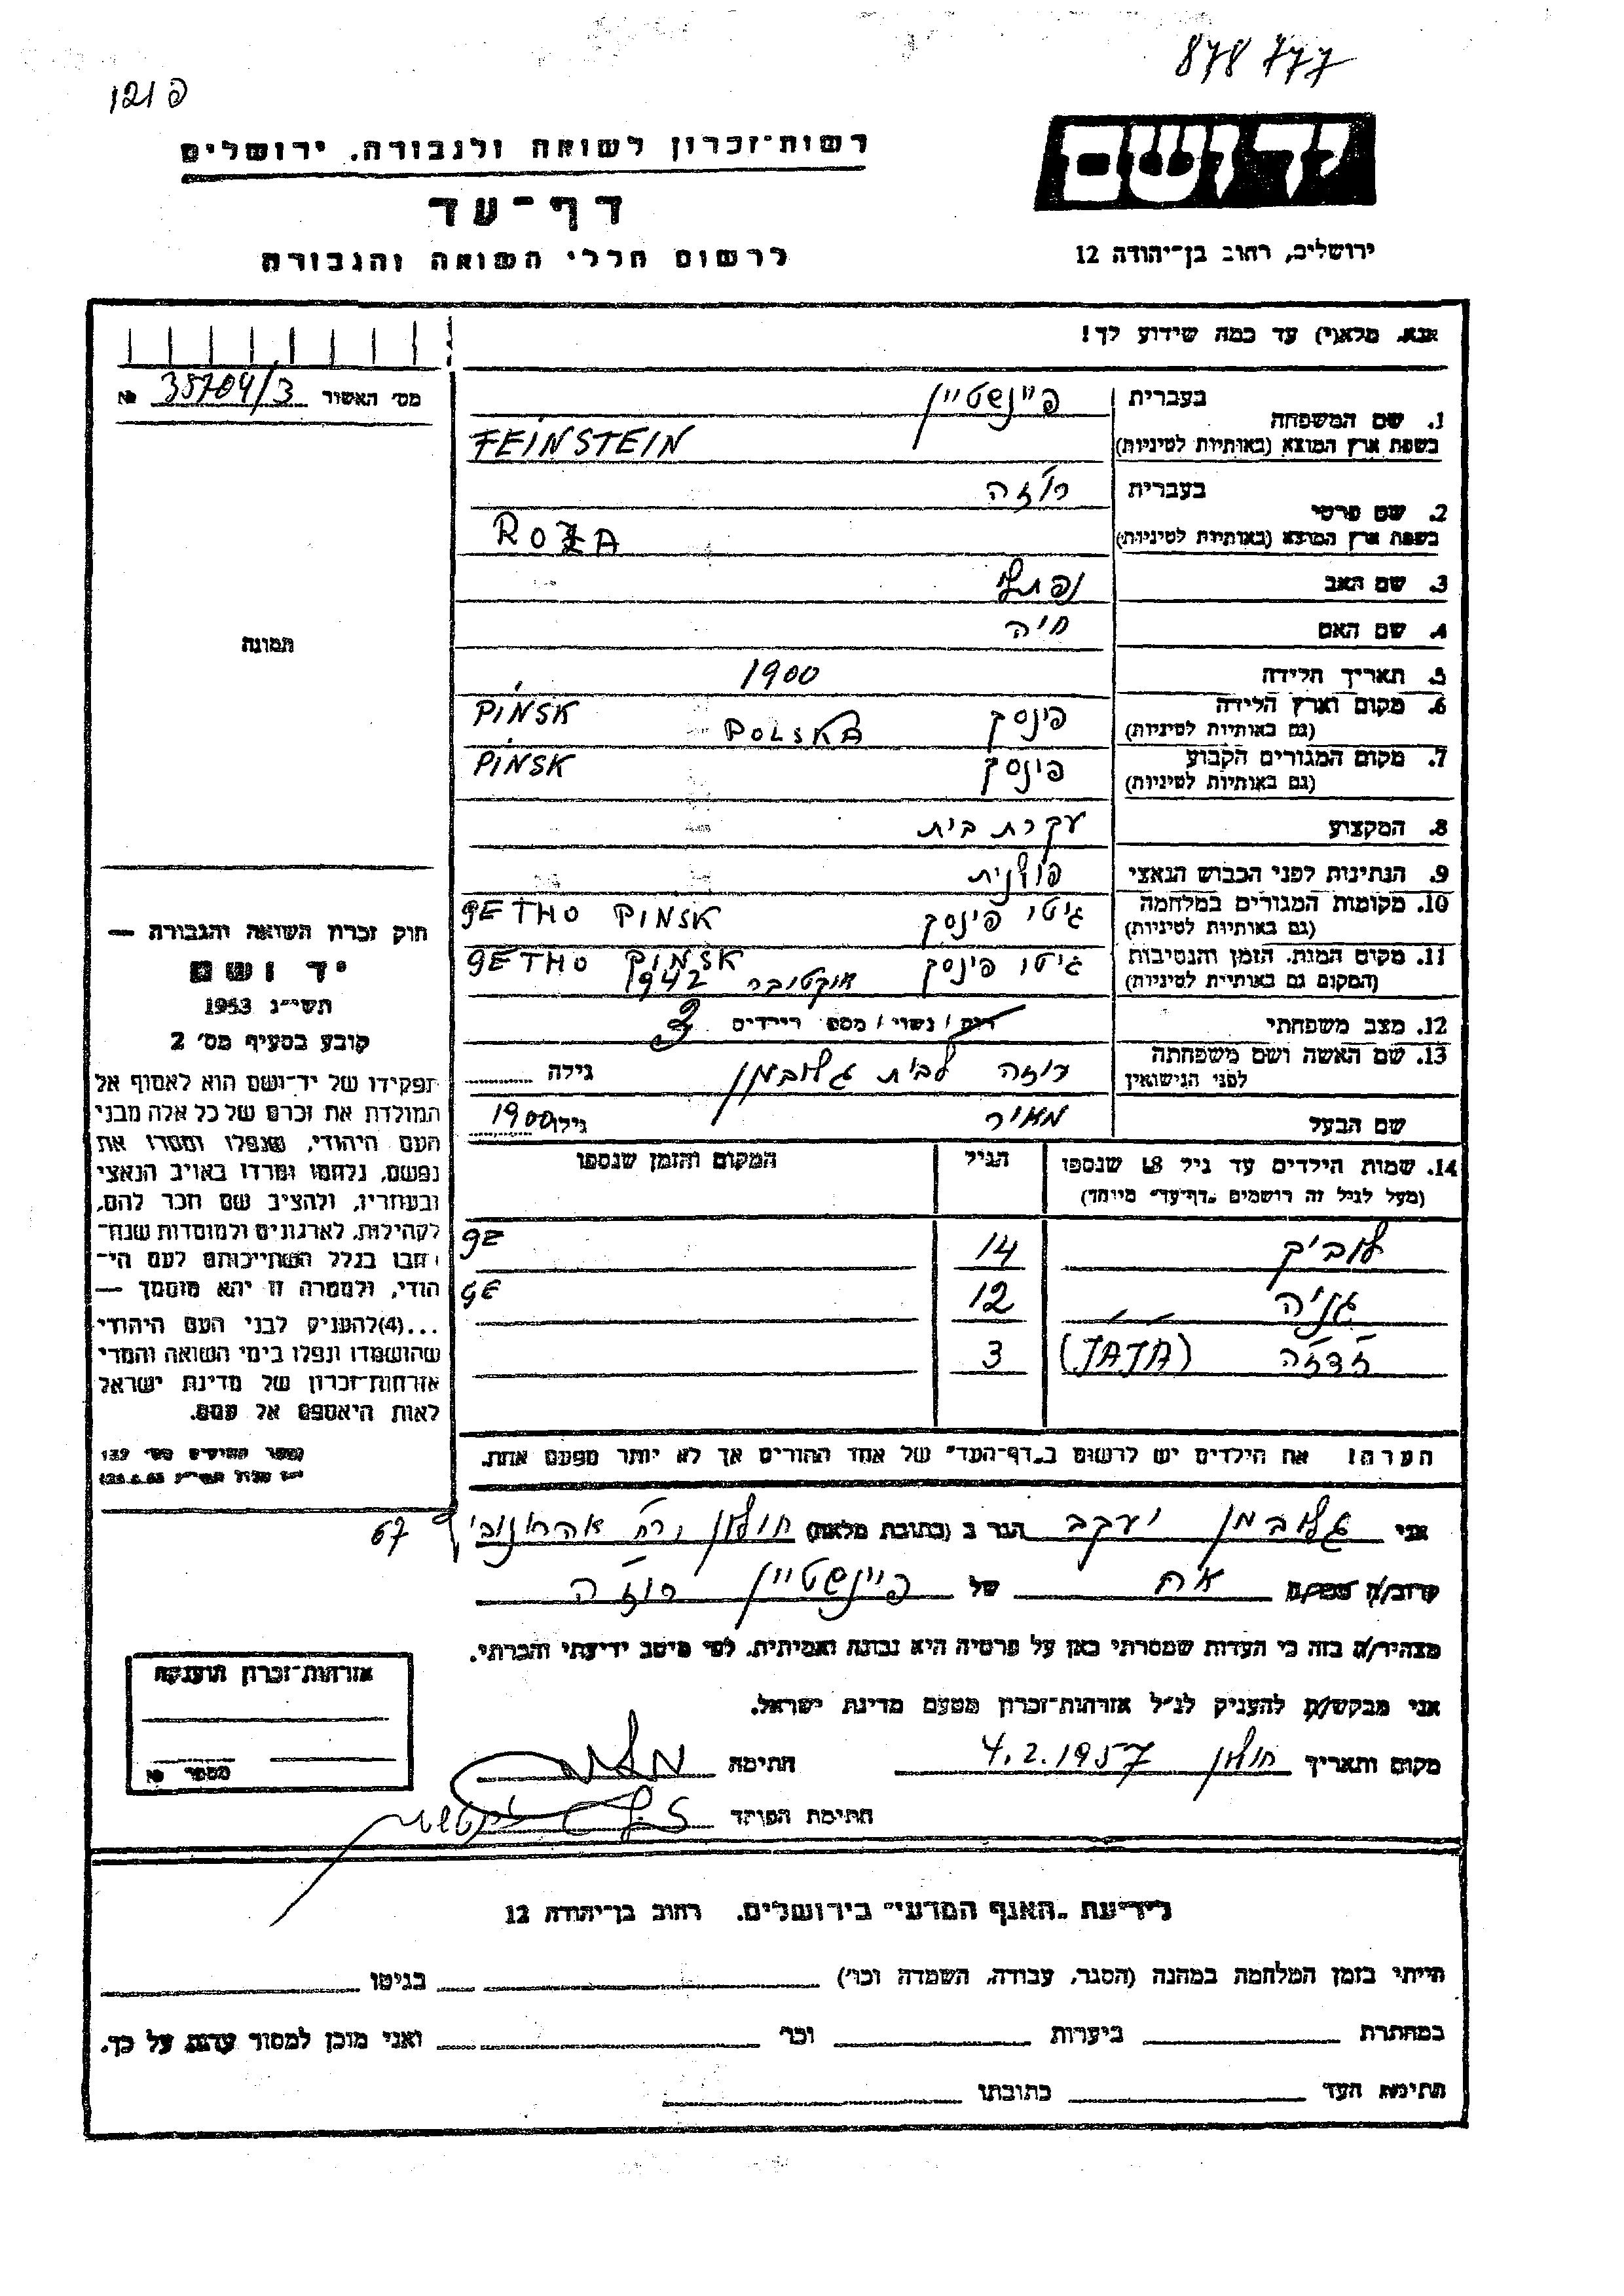 878777
פ 121
יד ושם
רשות־זכרון לשואה ולגבורה. ירושלים
דף־עד
לרשום חללי השואה והגבורה
ירושלים, רחוב בן־יהודה 12
אנא, מלא(י) עד כמה שידוע לך!
מס׳ האשור 35704/3 №
תמונה
1. שם המשפחה
בעברית פיינשטיין
בשפת ארץ המוצא (באותיות לטיניות) FEINSTEIN
2. שם פרטי
בעברית רוזה
בשפת ארץ המוצא (באותיות לטיניות) ROZA
3. שם האב נפתלי
4. שם האם חיה
5. תאריך הלידה 1900
6. מקום וארץ הלידה פינסק POLSKA PINSK
(גם באותיות לטיניות)
7. מקום המגורים הקבוע פינסק PINSK
(גם באותיות לטיניות)
8. המקצוע עקרת בית
9. הנתינות לפני הכבוש הנאצי פולנית
10. מקומות המגורים במלחמה גיטו פינסק GETHO PINSK
(גם באותיות לטיניות)
11. מקום המות, הזמן והנסיבות גיטו פינסק GETHO PINSK
(המקום גם באותיות לטיניות) אוקטובר 1942
12. מצב משפחתי רוק / נשוי / מספר הילדים 3
13. שם האשה ושם משפחתה רוזה לבית גלובמן גילה
לפני הנישואין
שם הבעל מאיר גילו 1900
14. שמות הילדים עד גיל 18 שנספו הגיל המקום והזמן שנספו
(מעל לגיל זה רושמים „דף־עד” מיוחד)
לוביק 14 GE
גניה 12 GE
ז׳דז׳ה (JAJA) 3
הערה: את הילדים יש לרשום ב„דף־העד” של אחד ההורים אך לא יותר מפעם אחת.
חוק זכרון השואה והגבורה —
יד ושם
תשי״ג 1953
קובע בסעיף מס׳ 2
תפקידו של יד־ושם הוא לאסוף אל
המולדת את זכרם של כל אלה מבני
העם היהודי, שנפלו ומסרו את
נפשם, נלחמו ומרדו באויב הנאצי
ובעוזריו, ולהציב שם וזכר להם,
לקהילות, לארגונים ולמוסדות שנח־
רבו בגלל השתייכותם לעם הי־
הודי, ולמטרה זו יהא מוסמך —
...(4) להעניק לבני העם היהודי
שהושמדו ונפלו בימי השואה והמרי
אזרחות־זכרון של מדינת ישראל
לאות היאספם אל עמם.
אני גלובמן יעקב הגר ב (כתובת מלאה) חולון 67
קרוב/ה אח של פיינשטיין רוזה
מצהיר/ה בזה כי העדות שמסרתי כאן על פרטיה היא נכונה ואמיתית, לפי מיטב ידיעתי והכרתי.
אני מבקש/ת להעניק לנ״ל אזרחות־זכרון מטעם מדינת ישראל.
מקום ותאריך חולון 4.2.1957 חתימה
חתימת הפוקד
אזרחות־זכרון הוענקה
מספר №
לידיעת „האגף המדעי” בירושלים, רחוב בן־יהודה 12
הייתי בזמן המלחמה במחנה (הסגר, עבודה, השמדה וכו׳) בגיטו
במחתרת ביערות וכו׳ ואני מוכן למסור עדות על כך.
חתימת העד כתובתו